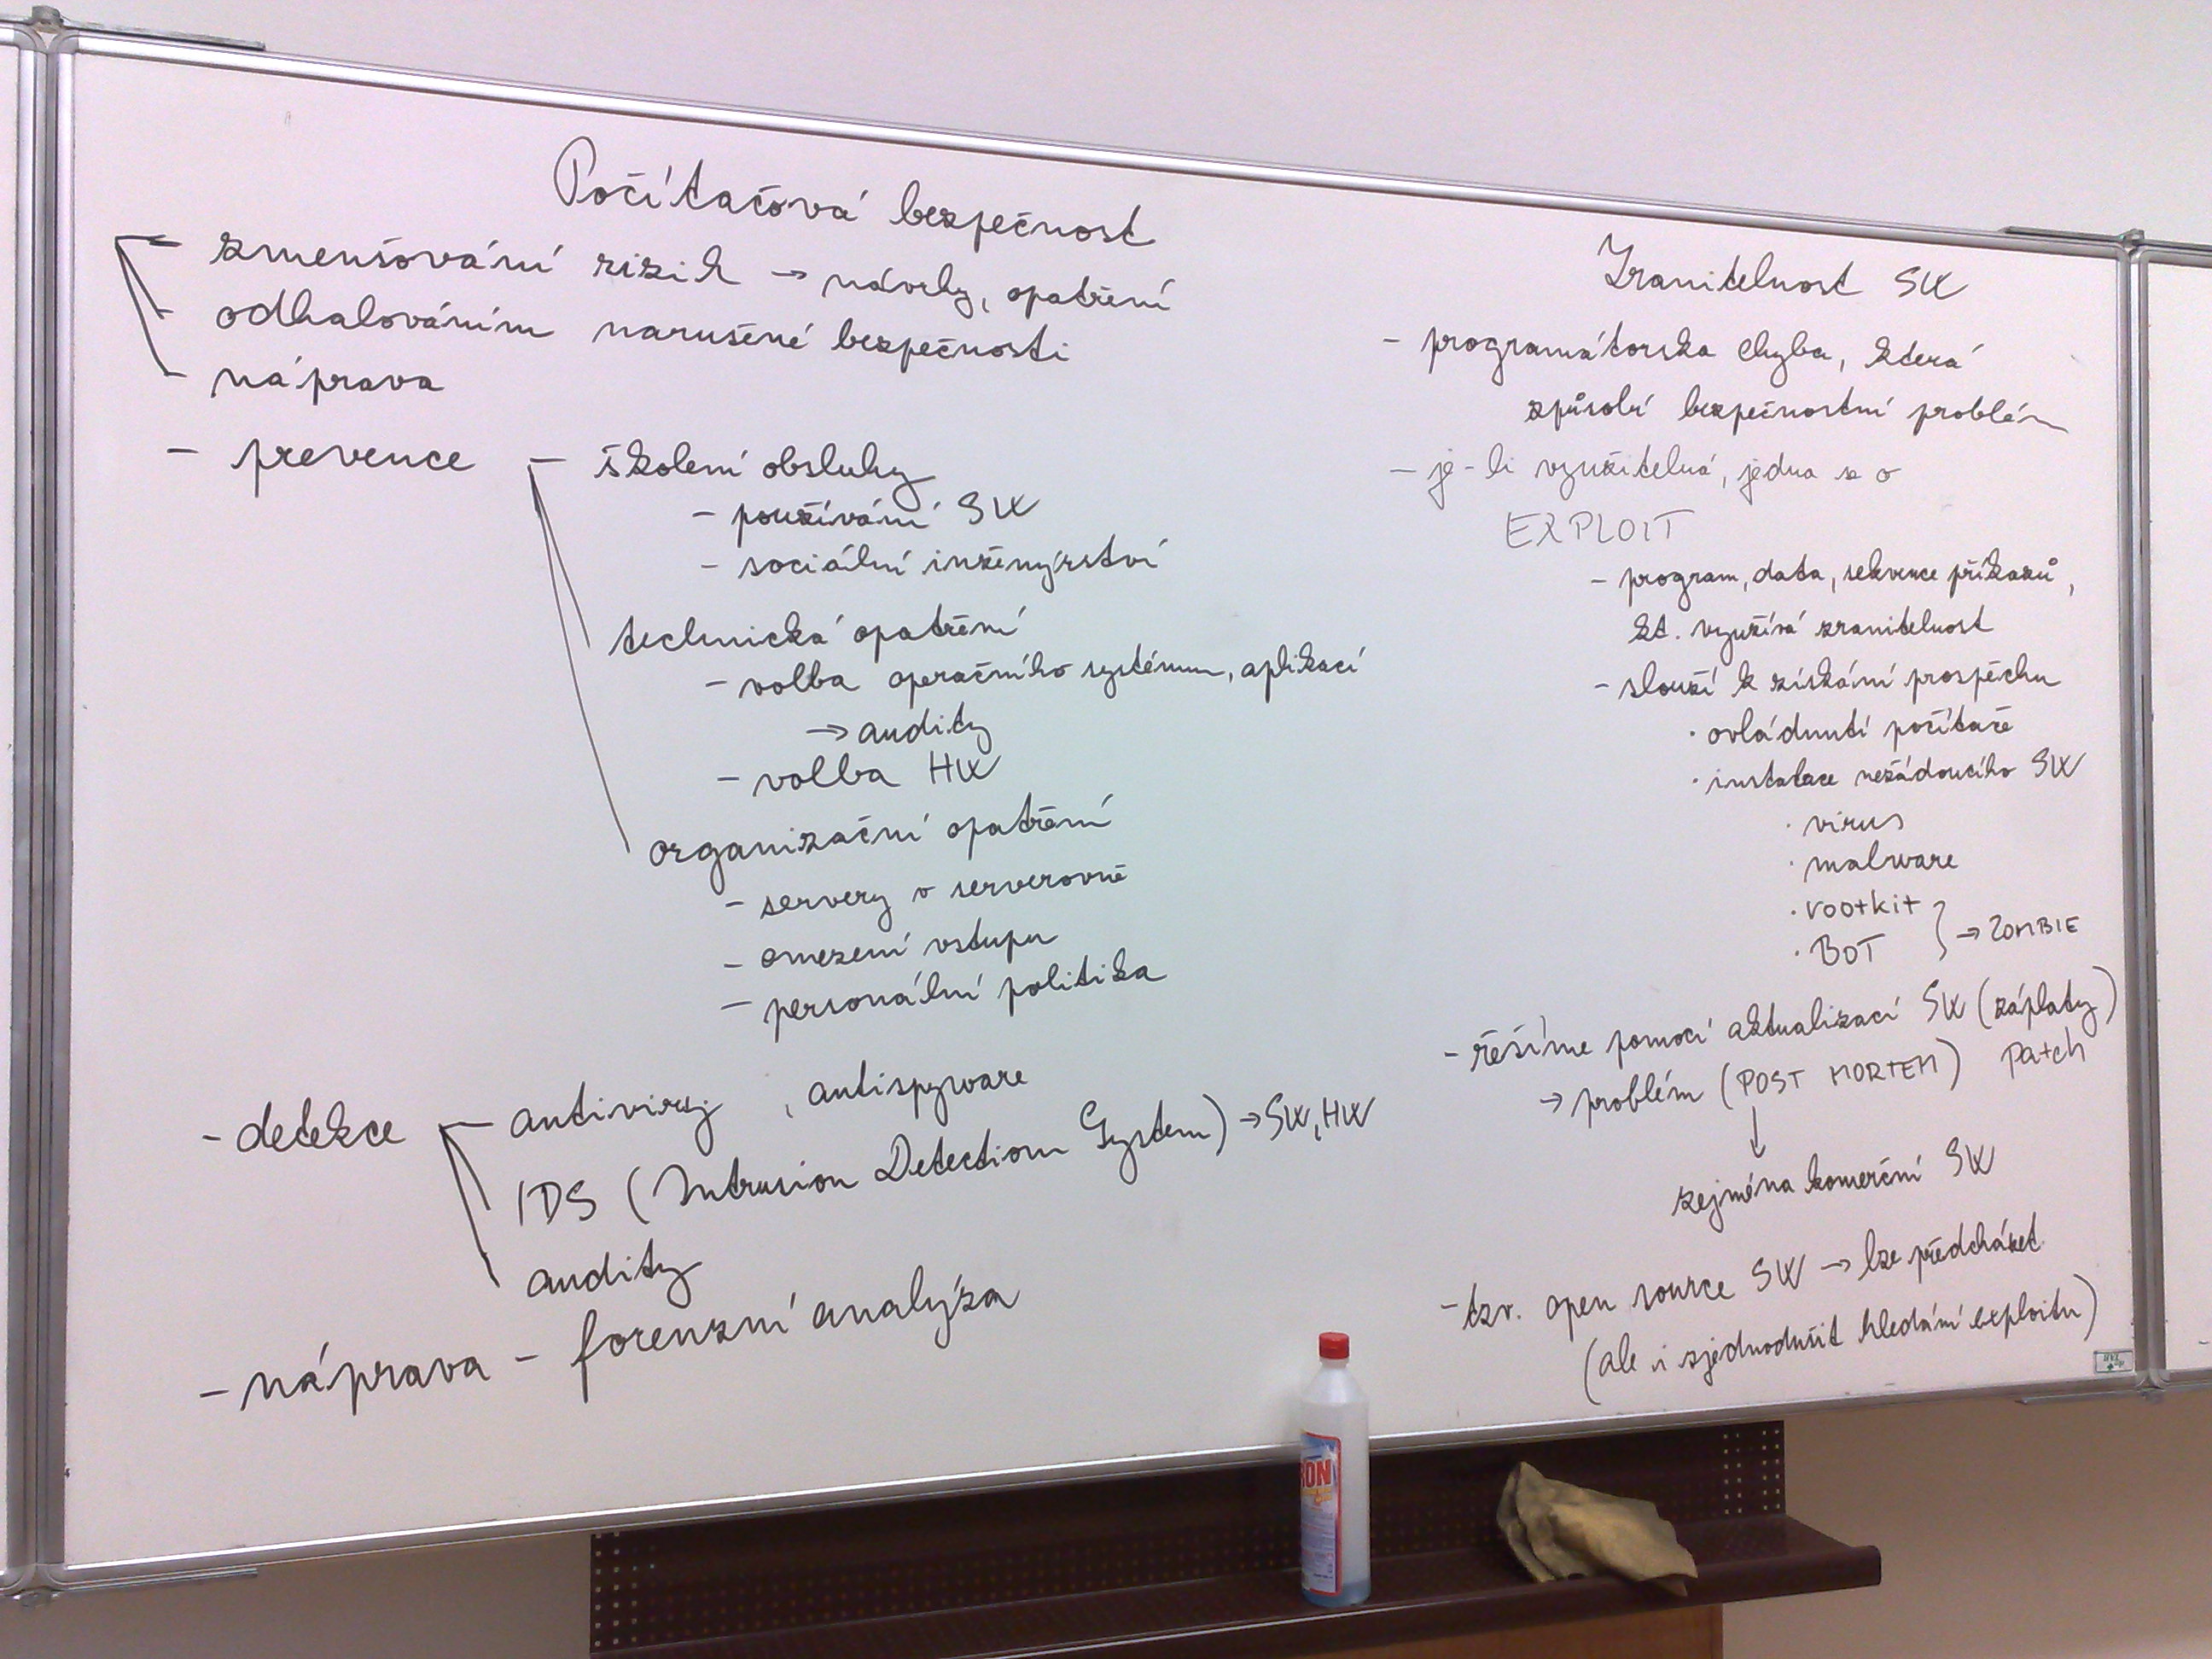 Počítačová bezpečnost
- zmenšování rizik → návrhy, opatření
- odhalováním narušené bezpečnosti
- náprava
- prevence - školení obsluhy
- používání SW
- sociální inženýrství
technická opatření
- volba operačního systému, aplikací
→ audity
- volba HW
organizační opatření
- servery v serverovně
- omezení vstupu
- personální politika
- detekce - antiviry, antispyware
IDS (Intrusion Detection System) → SW, HW
audity
- náprava - forenzní analýza
Zranitelnost SW
- programátorska chyba, která
způsobí bezpečnostní problém
- je-li využitelná, jedna se o
EXPLOIT
- program, data, sekvence příkazů,
kt. využívá zranitelnost
- slouží k získání prospěchu
· ovládnutí počítače
· instalace nežádoucího SW
· virus
· malware
· rootkit
· BOT } → ZOMBIE
- řešíme pomocí aktualizací SW (záplaty)
Patch
→ problém (POST MORTEM)
↓
zejména komerční SW
- tzv. open source SW → lze předcházet
(ale i zjednodušit hledání exploitu)
ON